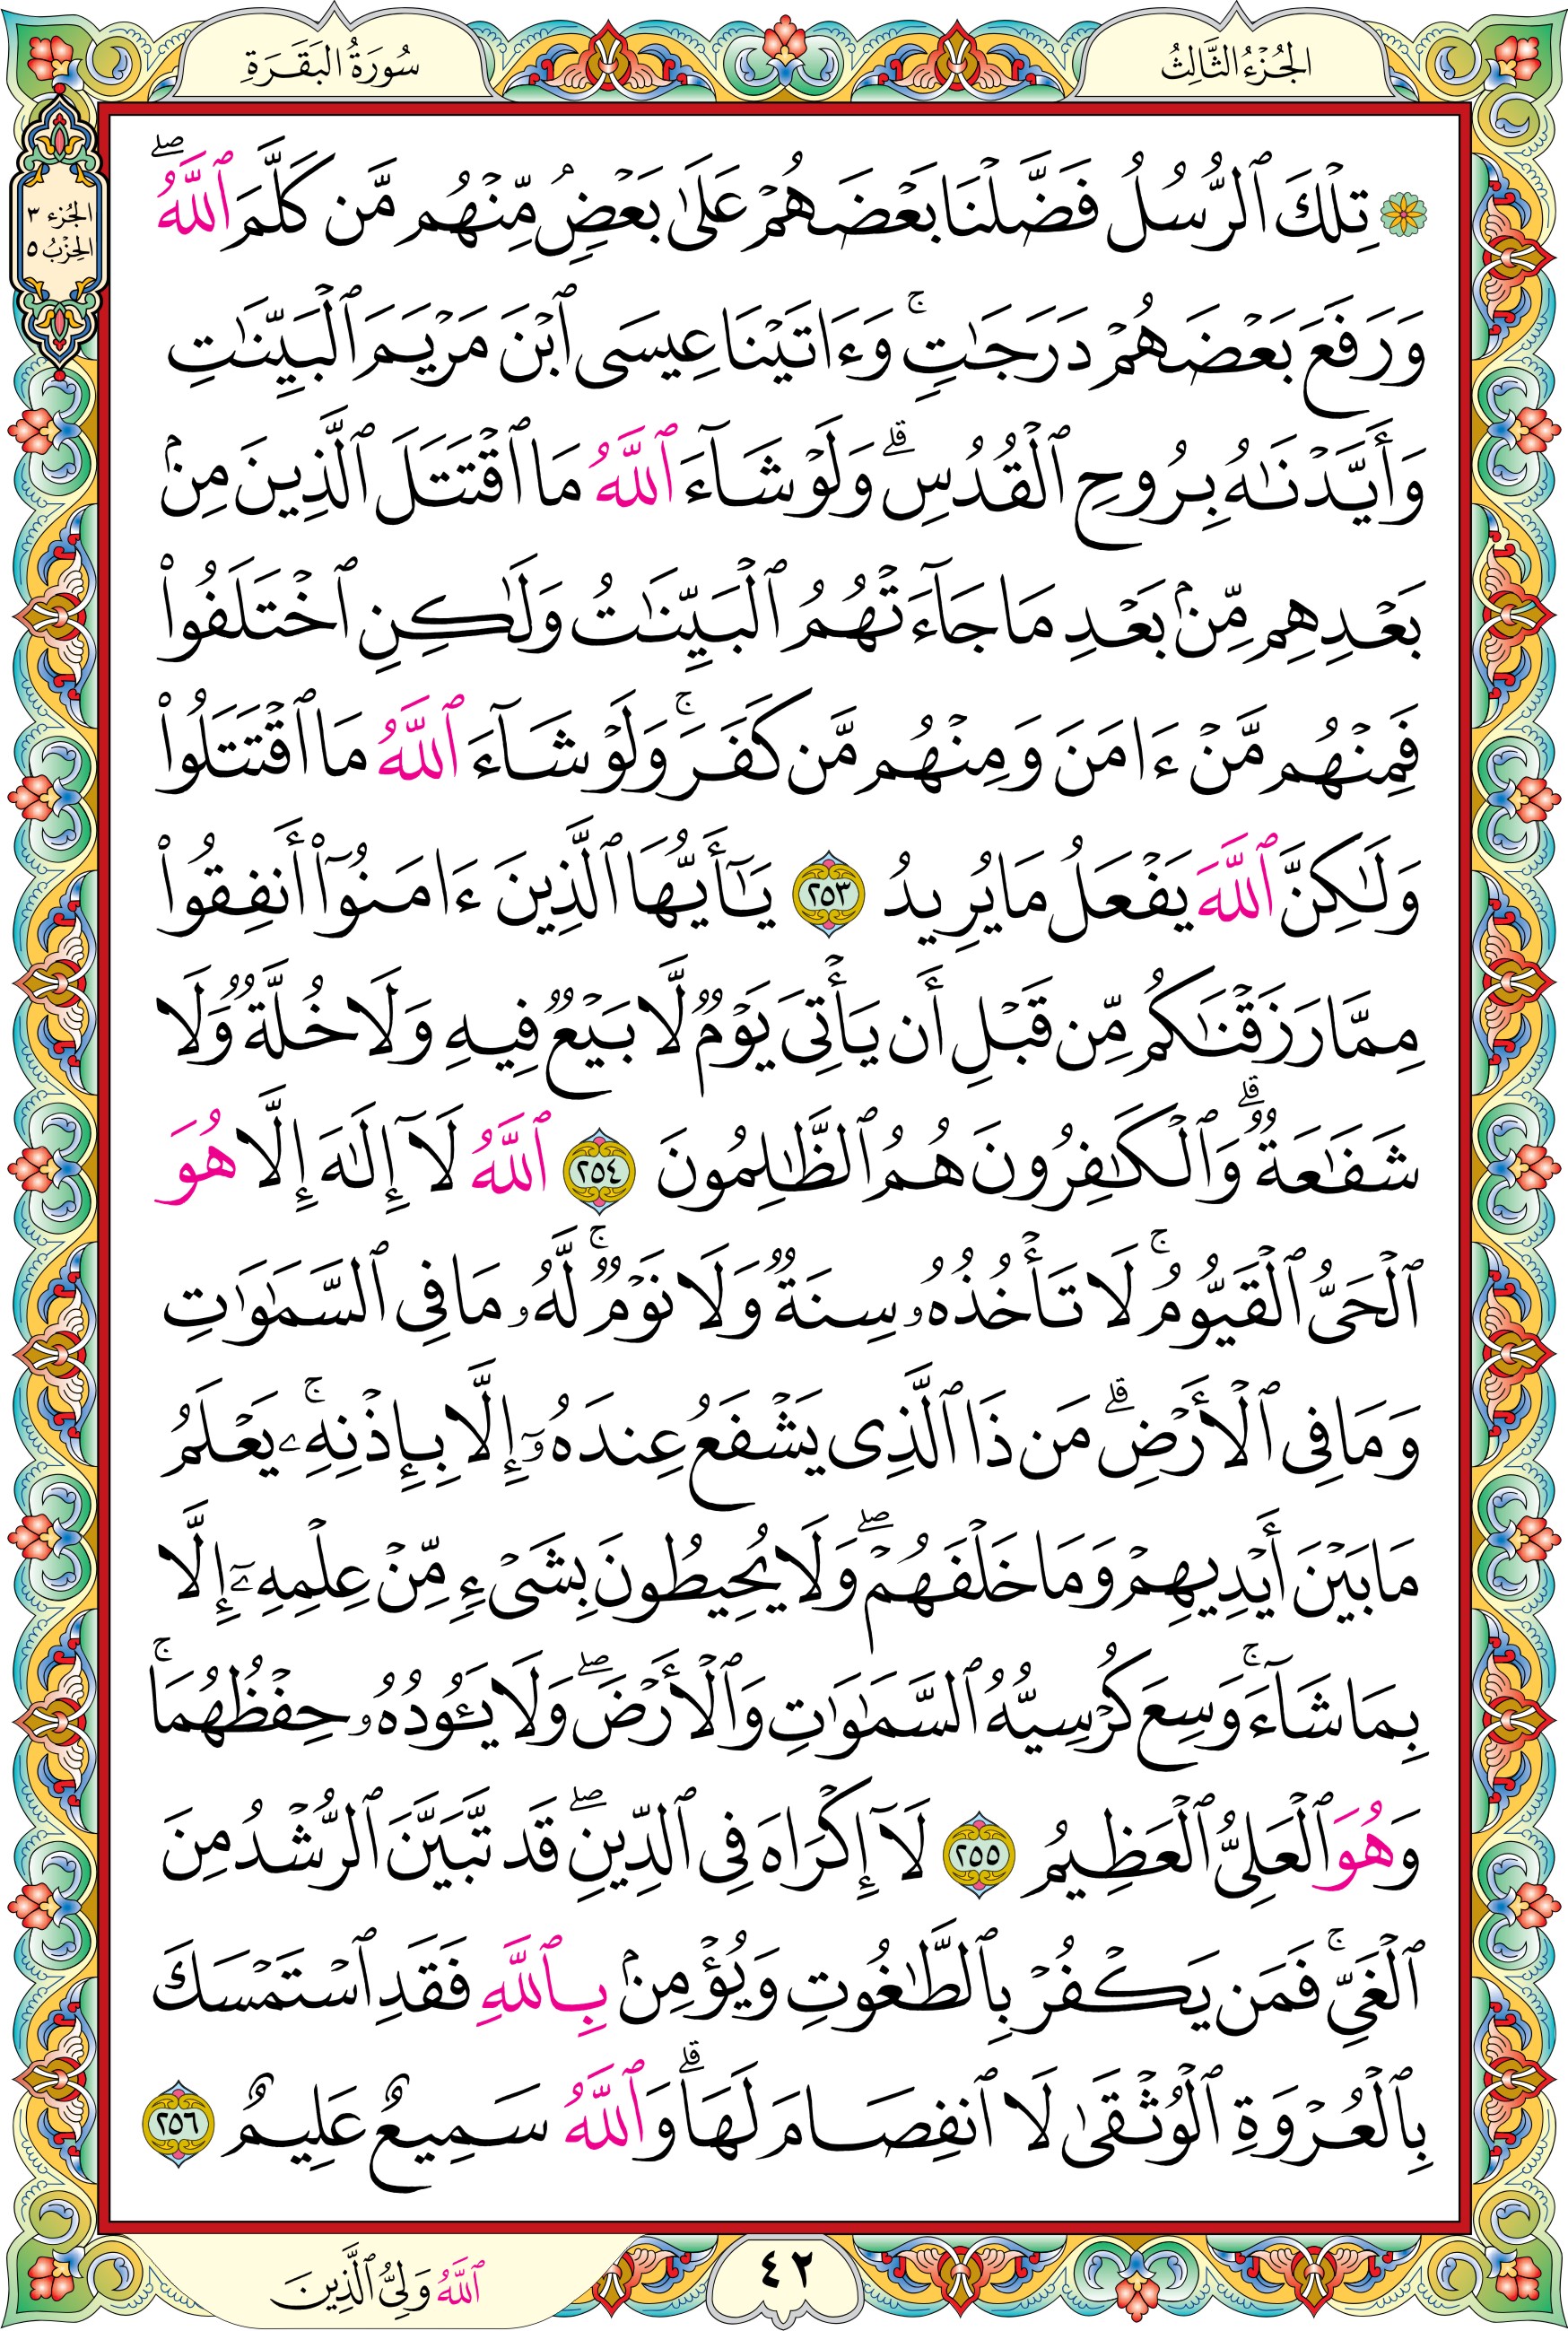 الجُزْءُ الثَّالِثُ
سُورَةُ البَقَرَةِ
الجُزء ٣
الحِزْبُ ٥
تِلْكَ ٱلرُّسُلُ فَضَّلْنَا بَعْضَهُمْ عَلَىٰ بَعْضٍۘ مِّنْهُم مَّن كَلَّمَ ٱللَّهُۖ
وَرَفَعَ بَعْضَهُمْ دَرَجَٰتٍۚ وَءَاتَيْنَا عِيسَى ٱبْنَ مَرْيَمَ ٱلْبَيِّنَٰتِ
وَأَيَّدْنَٰهُ بِرُوحِ ٱلْقُدُسِۗ وَلَوْ شَآءَ ٱللَّهُ مَا ٱقْتَتَلَ ٱلَّذِينَ مِنۢ
بَعْدِهِم مِّنۢ بَعْدِ مَا جَآءَتْهُمُ ٱلْبَيِّنَٰتُ وَلَٰكِنِ ٱخْتَلَفُوا۟
فَمِنْهُم مَّنْ ءَامَنَ وَمِنْهُم مَّن كَفَرَۚ وَلَوْ شَآءَ ٱللَّهُ مَا ٱقْتَتَلُوا۟
وَلَٰكِنَّ ٱللَّهَ يَفْعَلُ مَا يُرِيدُ ٢٥٣ يَٰٓأَيُّهَا ٱلَّذِينَ ءَامَنُوٓا۟ أَنفِقُوا۟
مِمَّا رَزَقْنَٰكُم مِّن قَبْلِ أَن يَأْتِىَ يَوْمٌ لَّا بَيْعٌ فِيهِ وَلَا خُلَّةٌ وَلَا
شَفَٰعَةٌۗ وَٱلْكَٰفِرُونَ هُمُ ٱلظَّٰلِمُونَ ٢٥٤ ٱللَّهُ لَآ إِلَٰهَ إِلَّا هُوَ
ٱلْحَىُّ ٱلْقَيُّومُۚ لَا تَأْخُذُهُۥ سِنَةٌ وَلَا نَوْمٌۚ لَّهُۥ مَا فِى ٱلسَّمَٰوَٰتِ
وَمَا فِى ٱلْأَرْضِۗ مَن ذَا ٱلَّذِى يَشْفَعُ عِندَهُۥٓ إِلَّا بِإِذْنِهِۦۚ يَعْلَمُ
مَا بَيْنَ أَيْدِيهِمْ وَمَا خَلْفَهُمْۖ وَلَا يُحِيطُونَ بِشَىْءٍ مِّنْ عِلْمِهِۦٓ إِلَّا
بِمَا شَآءَۚ وَسِعَ كُرْسِيُّهُ ٱلسَّمَٰوَٰتِ وَٱلْأَرْضَۖ وَلَا يَـُٔودُهُۥ حِفْظُهُمَاۚ
وَهُوَ ٱلْعَلِىُّ ٱلْعَظِيمُ ٢٥٥ لَآ إِكْرَاهَ فِى ٱلدِّينِۖ قَد تَّبَيَّنَ ٱلرُّشْدُ مِنَ
ٱلْغَىِّۚ فَمَن يَكْفُرْ بِٱلطَّٰغُوتِ وَيُؤْمِنۢ بِٱللَّهِ فَقَدِ ٱسْتَمْسَكَ
بِٱلْعُرْوَةِ ٱلْوُثْقَىٰ لَا ٱنفِصَامَ لَهَاۗ وَٱللَّهُ سَمِيعٌ عَلِيمٌ ٢٥٦
٤٢
ٱللَّهُ وَلِىُّ ٱلَّذِينَ